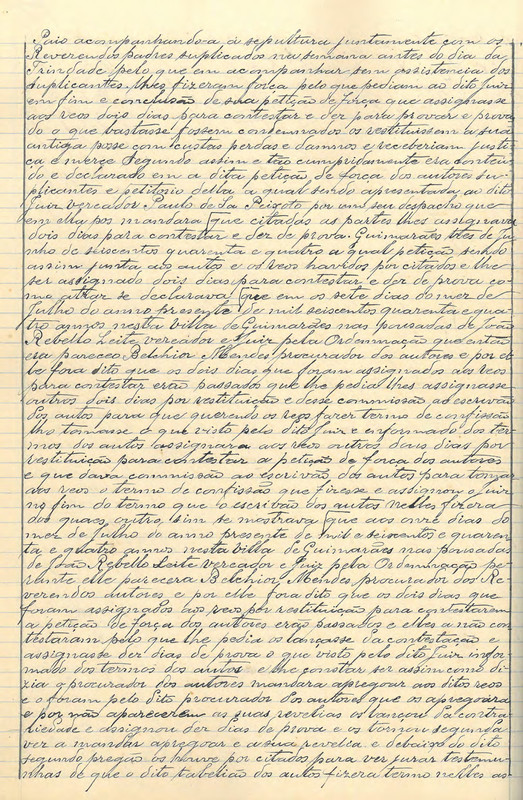 Paio acompanhando-a á sepultura juntamente com os
Reverendos padres suplicados na semana antes do dia da
Trindade pelo que em acompanhar sem assistencia dos
suplicantes lhes fizeram força pelo que pediam ao dito Juiz
em fim e conclusão de sua petição de força que assignasse
aos reos dois dias para contestar e dez para provar e prova
do o que bastasse fossem condemnados os restituissem á sua
antiga posse com custas perdas e damnos e receberiam justi
ça e merce segundo assim e tão cumpridamente era conteu
do e declarado em a dita petição de força dos autores su
plicantes e petitorio della a qual sendo apresentada ao dito
Juiz vereador Paulo de Sa Peixoto por um seu despacho que
em ella pos mandara que citadas as partes lhes assignava
dois dias para contestar e dez de prova. Guimarães tres de Ju
nho de seiscentos quarenta e quatro a qual petição sendo
assim junta aos autos e os reos havidos por citados e lhe
ser assignado dois dias para contestar e dez de prova co
mo se declarava que em os sete dias do mez de
Julho do anno presente de mil seiscentos quarenta e qua
tro annos nesta villa de Guimarães nas pousadas de João
Rebello Leite vereador e Juiz pela Ordennação que então
era pareceo Belchior Mendes procurador dos autores e por el
le fora dito que os dois dias que foram assignados aos reos
para contestar erão passados que lhe pedia lhes assignasse
outros dois dias por restituição e desse commissão ao escrivão
dos autos para que querendo os reos fazer termo de confissão
lho tomasse o que visto pelo dito Juiz e enformado dos ter
mos dos autos assignara aos reos outros dous dias por
restituição para contestar a petição de força dos autores
e que dava commissão ao escrivão dos autos para tomar
aos reos o termo de confissão que fizesse e assignou o Juiz
no fim do termo que o escrivão dos autos nelles fizera
dos quaes outro sim se mostrava que aos onze dias do
mez de Julho do anno presente de mil e seiscentos e quaren
ta e quatro annos nesta villa de Guimarães nas pousadas
de João Rebello Leite vereador e Juiz pela Ordennação pe
rante elle parecera Belchior Mendes procurador dos Re
verendos autores e por elle fora dito que os dois dias que
foram assignados aos reos por restituição para contestarem
a petição de força dos autores erão passados e elles a não con
testaram pelo que lhe pedia os lançasse da contestação e
assignasse dez dias de prova o que visto pelo dito Juiz infor
mado dos termos dos autos e lhe constar ser assim como di
zia o procurador dos autores mandara apregoar aos ditos reos
e o foram pelo dito procurador dos autores que os apregoara
e por não aparecerem ás suas revelias os lançou da contra
riedade e assignou dez dias de prova e os tornou segunda
vez a mandar apregoar e a sua revelia e debaixo do dito
segundo pregão os houve por citados para ver jurar testemu
nhas de que o dito tabelião dos autos fizera termo nelles as-